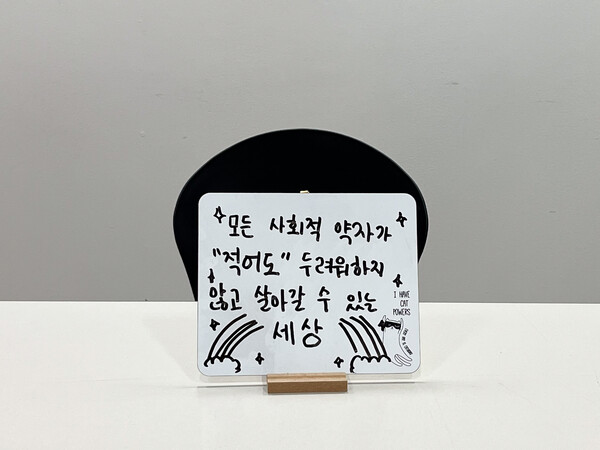 모든 사회적 약자가
"적어도" 두려워하지
않고 살아갈 수 있는
세상
I HAVE
CAT
POWERS